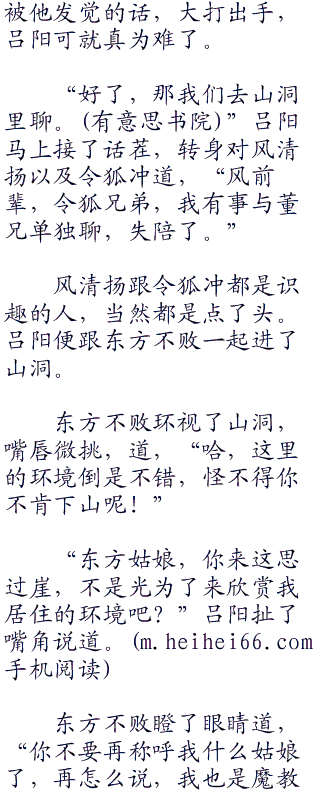 被他发觉的话，大打出手，
吕阳可就真为难了。
“好了，那我们去山洞
里聊。(有意思书院)”吕阳
马上接了话茬，转身对风清
扬以及令狐冲道，“风前
辈，令狐兄弟，我有事与董
兄单独聊，失陪了。”
风清扬跟令狐冲都是识
趣的人，当然都是点了头。
吕阳便跟东方不败一起进了
山洞。
东方不败环视了山洞，
嘴唇微挑，道，“哈，这里
的环境倒是不错，怪不得你
不肯下山呢！”
“东方姑娘，你来这思
过崖，不是光为了来欣赏我
居住的环境吧？”吕阳扯了
嘴角说道。(m.heihei66.com
手机阅读)
东方不败瞪了眼睛道，
“你不要再称呼我什么姑娘
了，再怎么说，我也是魔教